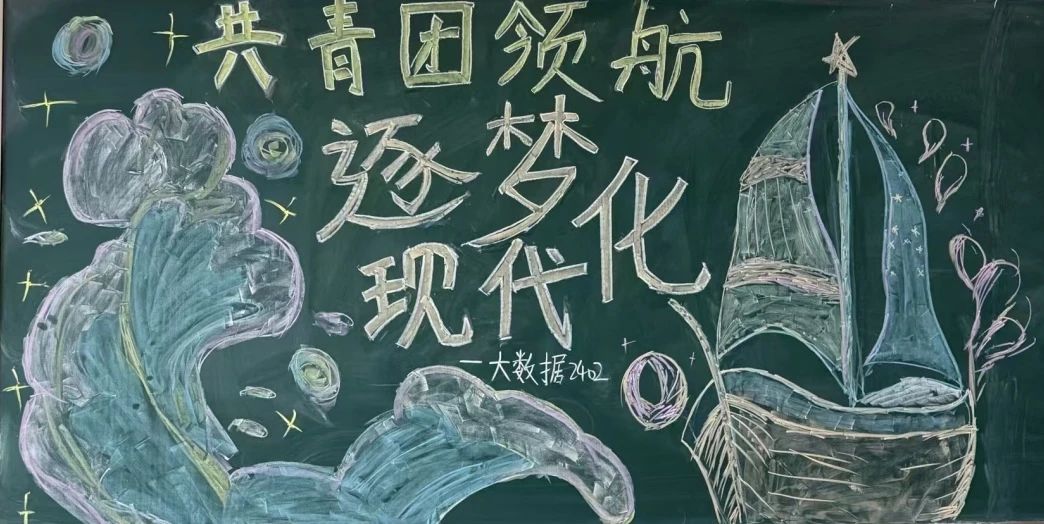 共青团领航
逐梦
现代化
一大数据2402